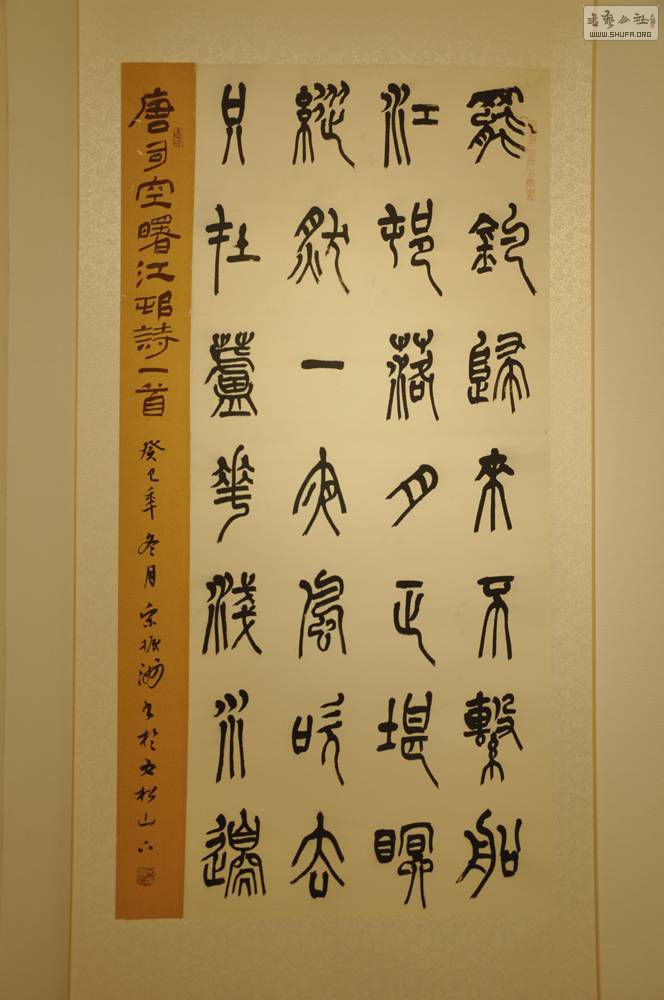 罷釣歸來不繫船
江邨落月正堪瞑
縱然一夜風吹去
只在蘆華淺水邊
唐司空曙江邨詩一首 癸巳年冬月 振洲書於五松山下
書藝公社
WWW.SHUFA.ORG